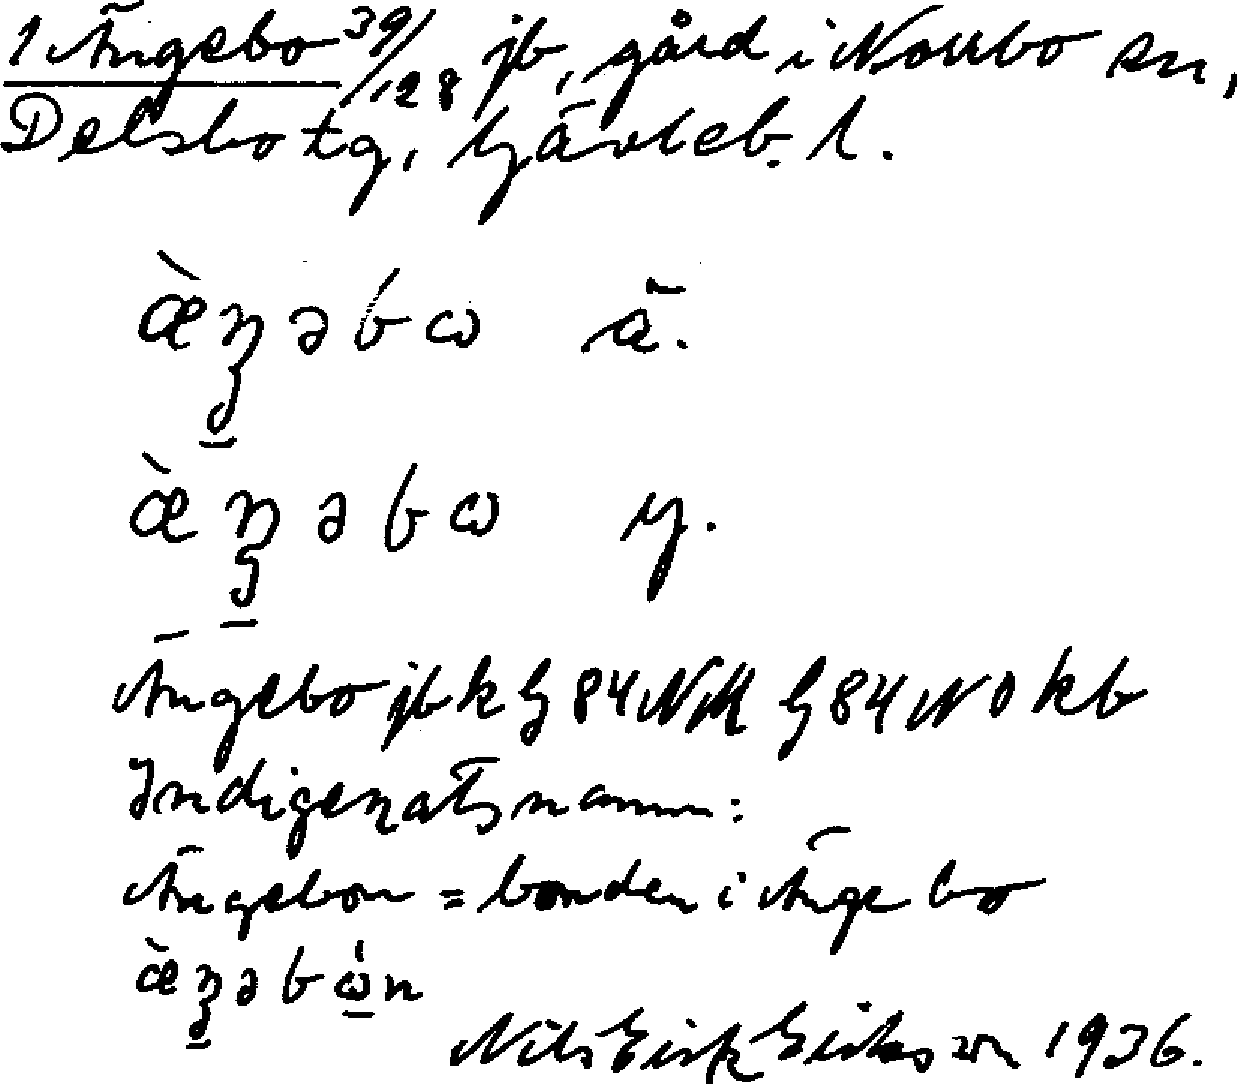 1 Ängebo 39/128 jb, gård i Norrbo sn,
Delsbo tg, Gävleb. l.
æ̀ŋəbω ä.
æ̀ŋəbω y.
Ängebo jb k G 84 NM G 84 NO kb
Indigenatsnamn:
Ängebon = bonden i Ängebo
æ̀ŋəbὼn
Nils Eirik Eiriksson 1936.